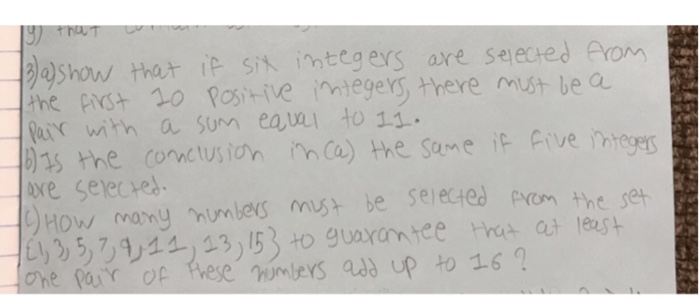 y) that
3)a) show that if six integers are selected from
the first 10 positive integers, there must be a
pair with a sum equal to 11.
b) Is the conclusion in (a) the same if five integers
are selected.
c) How many numbers must be selected from the set
{1, 3, 5, 7, 9, 11, 13, 15} to guarantee that at least
one pair of these numbers add up to 16?